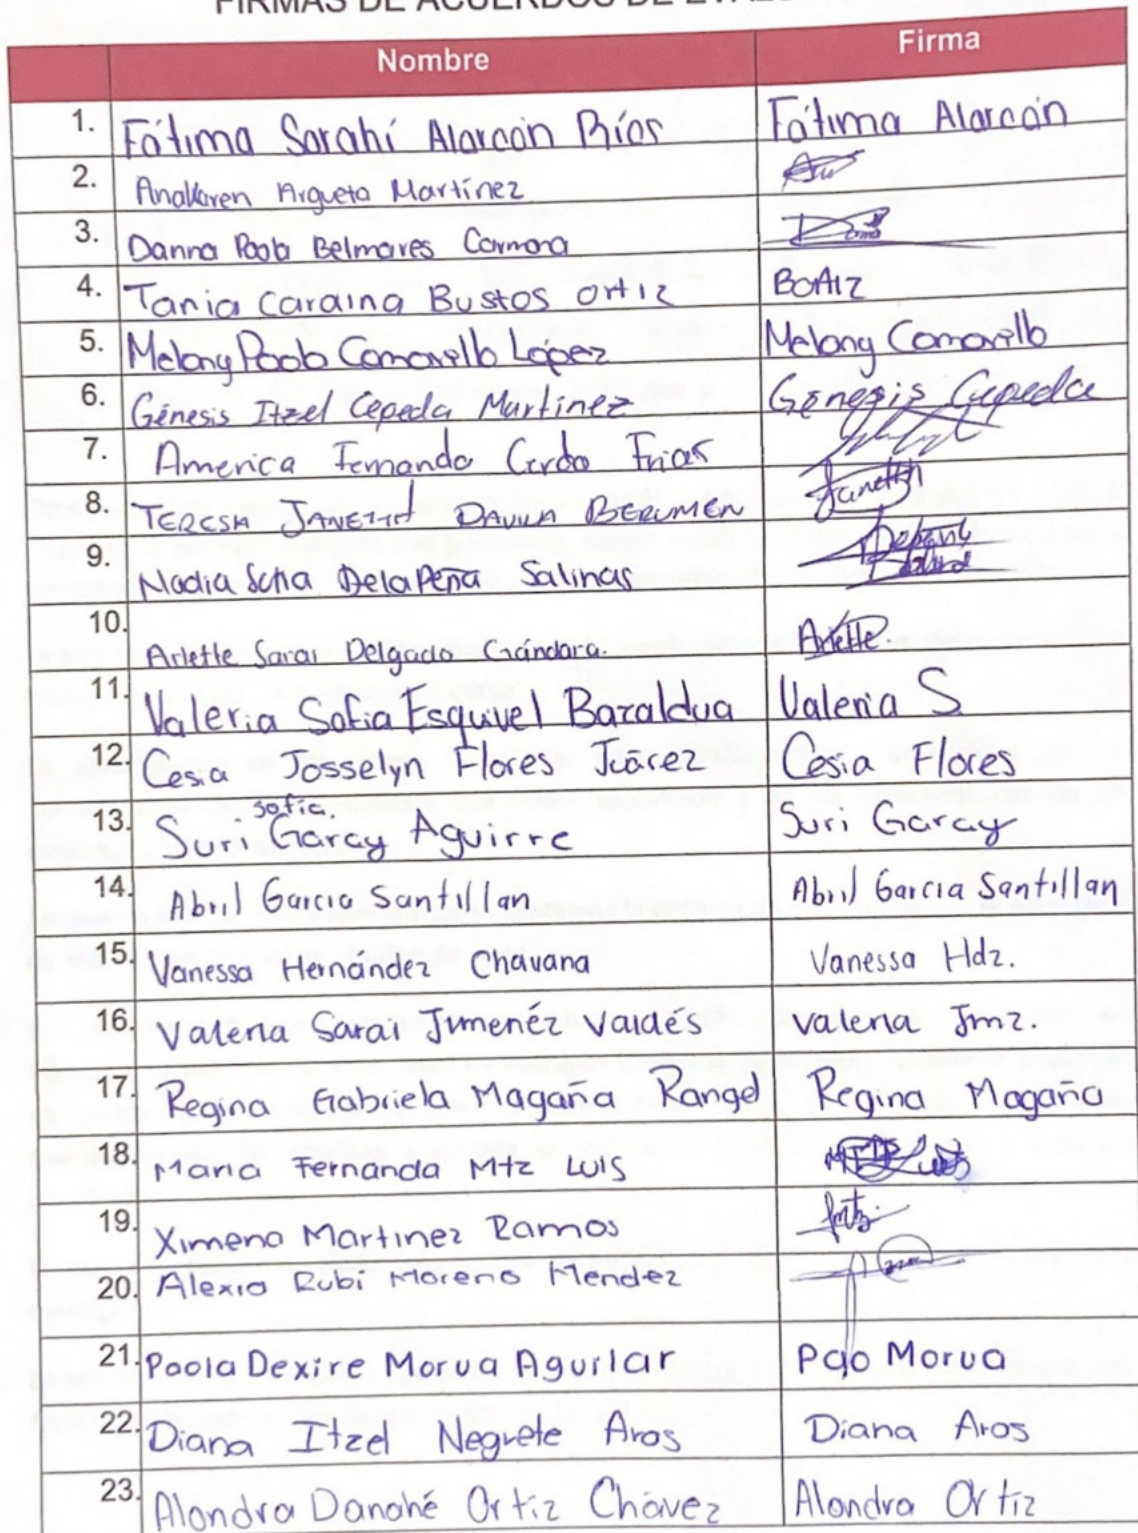 FIRMAS DE ACUERDOS DE
Nombre Firma
1. Fátima Sarahí Alarcón Ríos Fátima Alarcón
2. Anakaren Argueta Martínez
3. Danna Paola Belmares Carmona
4. Tania Caraina Bustos Ortiz
5. Melany Paola Camarillo López Melany Camarillo
6. Génesis Itzel Cepeda Martínez Génesis Cepeda
7. America Fernanda Cerda Frias
8. TERESA JANETTH DAVILA BERUMEN Janetth
9. Nadia Sofia De la Peña Salinas
10. Arlette Sarai Delgado Gándara. Arlette.
11. Valeria Sofia Esquivel Bazaldua Valeria S
12. Cesia Josselyn Flores Juárez Cesia Flores
sofia.
13. Suri Garay Aguirre Suri Garay
14. Abril Garcia Santillan Abril Garcia Santillan
15. Vanessa Hernández Chavana Vanessa Hdz.
16. Valeria Sarai Jimenéz Valdés Valeria Jmz.
17. Regina Gabriela Magaña Rangel Regina Magaña
18. Maria Fernanda Mtz Luis
19. Ximena Martinez Ramos
20. Alexia Rubi Moreno Mendez
21. Paola Dexire Morua Aguilar Pao Morua
22. Diana Itzel Negrete Aros Diana Aros
23. Alondra Danahé Ortiz Chávez Alondra Ortiz